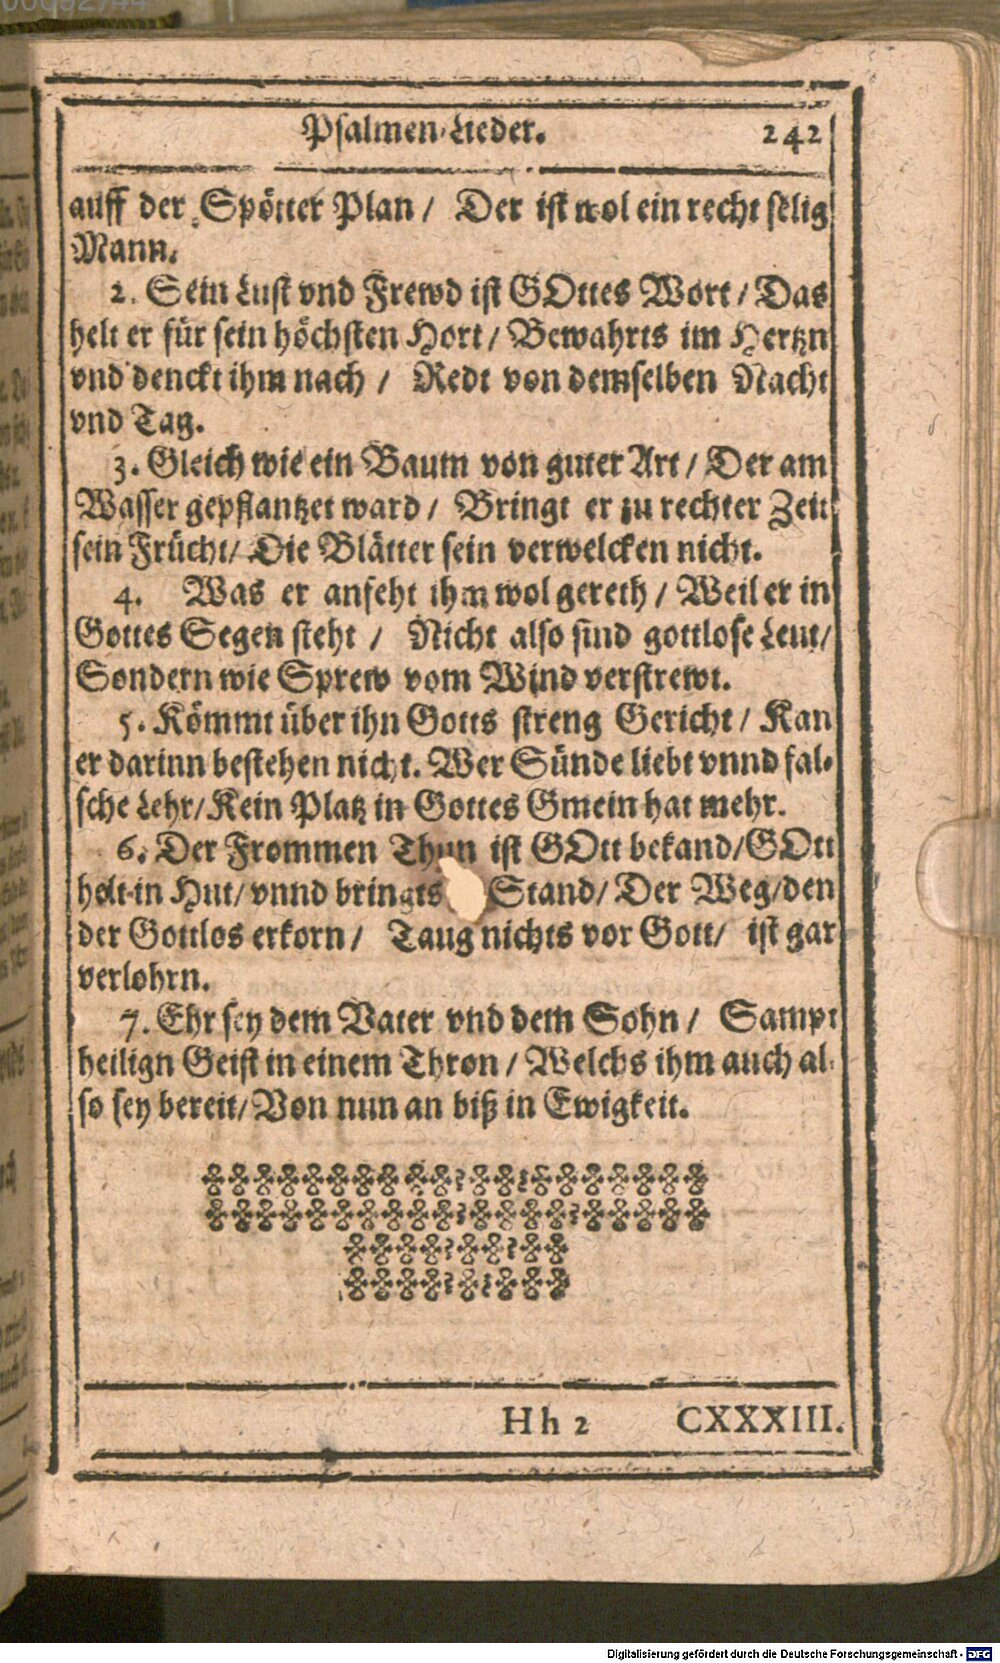 Psalmen-Lieder. 242
auff der Spötter Plan / Der ist wol ein recht selig
Mann.
2. Sein Lust vnd Frewd ist GOttes Wort / Das
helt er für sein höchsten Hort / Bewahrts im Hertzn
vnd denckt ihm nach / Redt von demselben Nacht
vnd Tag.
3. Gleich wie ein Baum von guter Art / Der am
Wasser gepflantzet ward / Bringt er zu rechter Zeit
sein Frücht / Die Blätter sein verwelcken nicht.
4. Was er anfeht ihm wol gereth / Weil er in
Gottes Segen steht / Nicht also sind gottlose Leut /
Sondern wie Sprew vom Wind verstrewt.
5. Kömmt über ihn Gotts streng Gericht / Kan
er darinn bestehen nicht. Wer Sünde liebt vnnd fal-
sche Lehr / Kein Platz in Gottes Gmein hat mehr.
6. Der Frommen Thun ist GOtt bekand / GOtt
helt in Hut / vnnd bringts Stand / Der Weg / den
der Gottlos erkorn / Taug nichts vor Gott / ist gar
verlohrn.
7. Ehr sey dem Vater vnd dem Sohn / Sampt
heilign Geist in einem Thron / Welchs ihm auch al-
so sey bereit / Von nun an biß in Ewigkeit.
Hh 2 CXXXIII.
Digitalisierung gefördert durch die Deutsche Forschungsgemeinschaft - DFG